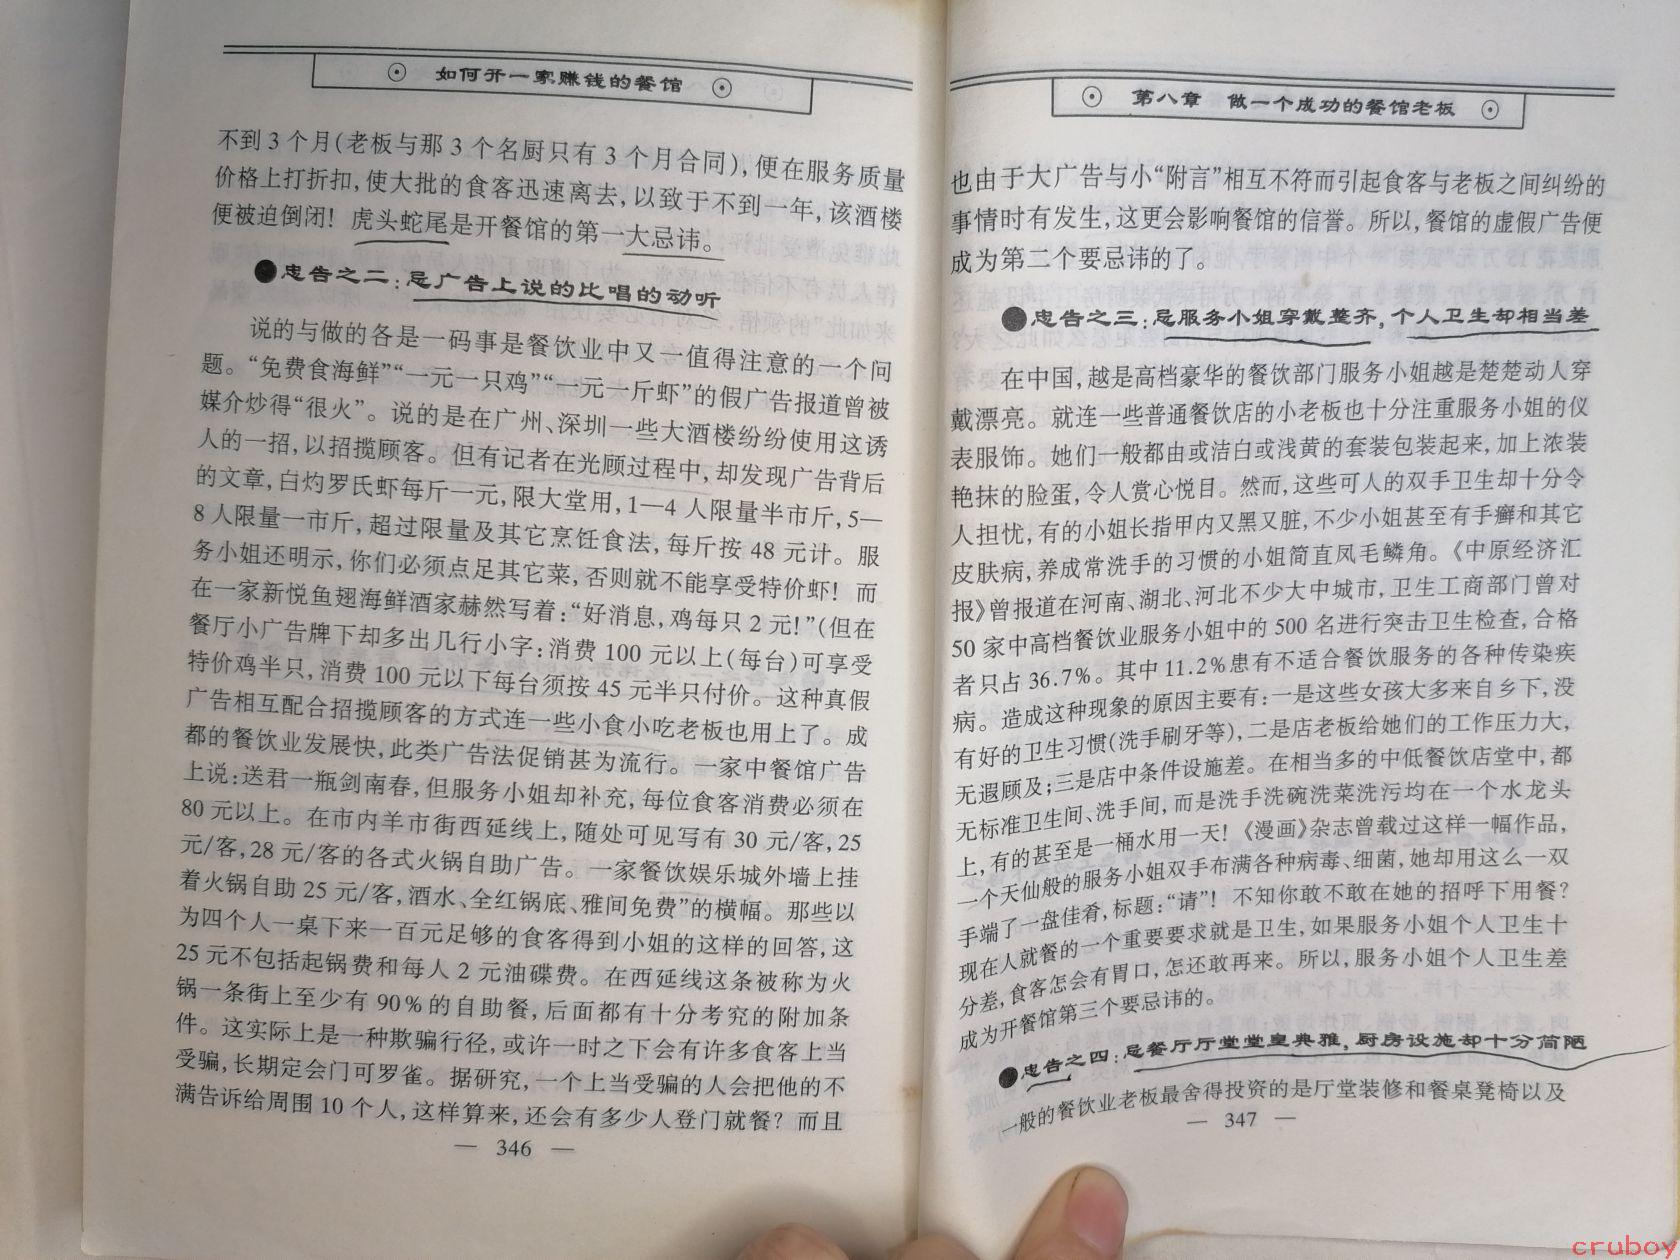 如何开一家赚钱的餐馆
不到3个月(老板与那3个名厨只有3个月合同),便在服务质量
价格上打折扣,使大批的食客迅速离去,以致于不到一年,该酒楼
便被迫倒闭!虎头蛇尾是开餐馆的第一大忌讳。
●忠告之二:忌广告上说的比唱的动听
说的与做的各是一码事是餐饮业中又一值得注意的一个问
题。“免费食海鲜”“一元一只鸡”“一元一斤虾”的假广告报道曾被
媒介炒得“很火”。说的是在广州、深圳一些大酒楼纷纷使用这诱
人的一招,以招揽顾客。但有记者在光顾过程中,却发现广告背后
的文章,白灼罗氏虾每斤一元,限大堂用,1—4人限量半市斤,5—
8人限量一市斤,超过限量及其它烹饪食法,每斤按48元计。服
务小姐还明示,你们必须点足其它菜,否则就不能享受特价虾!而
在一家新悦鱼翅海鲜酒家赫然写着:“好消息,鸡每只2元!”(但在
餐厅小广告牌下却多出几行小字:消费100元以上(每台)可享受
特价鸡半只,消费100元以下每台须按45元半只付价。这种真假
广告相互配合招揽顾客的方式连一些小食小吃老板也用上了。成
都的餐饮业发展快,此类广告法促销甚为流行。一家中餐馆广告
上说:送君一瓶剑南春,但服务小姐却补充,每位食客消费必须在
80元以上。在市内羊市街西延线上,随处可见写有30元/客,25
元/客,28元/客的各式火锅自助广告。一家餐饮娱乐城外墙上挂
着火锅自助25元/客,酒水、全红锅底、雅间免费”的横幅。那些以
为四个人一桌下来一百元足够的食客得到小姐的这样的回答,这
25元不包括起锅费和每人2元油碟费。在西延线这条被称为火
锅一条街上至少有90%的自助餐,后面都有十分考究的附加条
件。这实际上是一种欺骗行径,或许一时之下会有许多食客上当
受骗,长期定会门可罗雀。据研究,一个上当受骗的人会把他的不
满告诉给周围10个人,这样算来,还会有多少人登门就餐?而且
— 346 —
第八章 做一个成功的餐馆老板
也由于大广告与小“附言”相互不符而引起食客与老板之间纠纷的
事情时有发生,这更会影响餐馆的信誉。所以,餐馆的虚假广告便
成为第二个要忌讳的了。
●忠告之三:忌服务小姐穿戴整齐,个人卫生却相当差
在中国,越是高档豪华的餐饮部门服务小姐越是楚楚动人穿
戴漂亮。就连一些普通餐饮店的小老板也十分注重服务小姐的仪
表服饰。她们一般都由或洁白或浅黄的套装包装起来,加上浓装
艳抹的脸蛋,令人赏心悦目。然而,这些可人的双手卫生却十分令
人担忧,有的小姐长指甲内又黑又脏,不少小姐甚至有手癣和其它
皮肤病,养成常洗手的习惯的小姐简直凤毛鳞角。《中原经济汇
报》曾报道在河南、湖北、河北不少大中城市,卫生工商部门曾对
50家中高档餐饮业服务小姐中的500名进行突击卫生检查,合格
者只占36.7%。其中11.2%患有不适合餐饮服务的各种传染疾
病。造成这种现象的原因主要有:一是这些女孩大多来自乡下,没
有好的卫生习惯(洗手刷牙等),二是店老板给她们的工作压力大,
无遐顾及;三是店中条件设施差。在相当多的中低餐饮店堂中,都
无标准卫生间、洗手间,而是洗手洗碗洗菜洗污均在一个水龙头
上,有的甚至是一桶水用一天!《漫画》杂志曾载过这样一幅作品,
一个天仙般的服务小姐双手布满各种病毒、细菌,她却用这么一双
手端了一盘佳肴,标题:“请”!不知你敢不敢在她的招呼下用餐?
现在人就餐的一个重要要求就是卫生,如果服务小姐个人卫生十
分差,食客怎会有胃口,怎还敢再来。所以,服务小姐个人卫生差
成为开餐馆第三个要忌讳的。
●忠告之四:忌餐厅厅堂堂皇典雅,厨房设施却十分简陋
一般的餐饮业老板最舍得投资的是厅堂装修和餐桌凳椅以及
— 347 —
cruboy